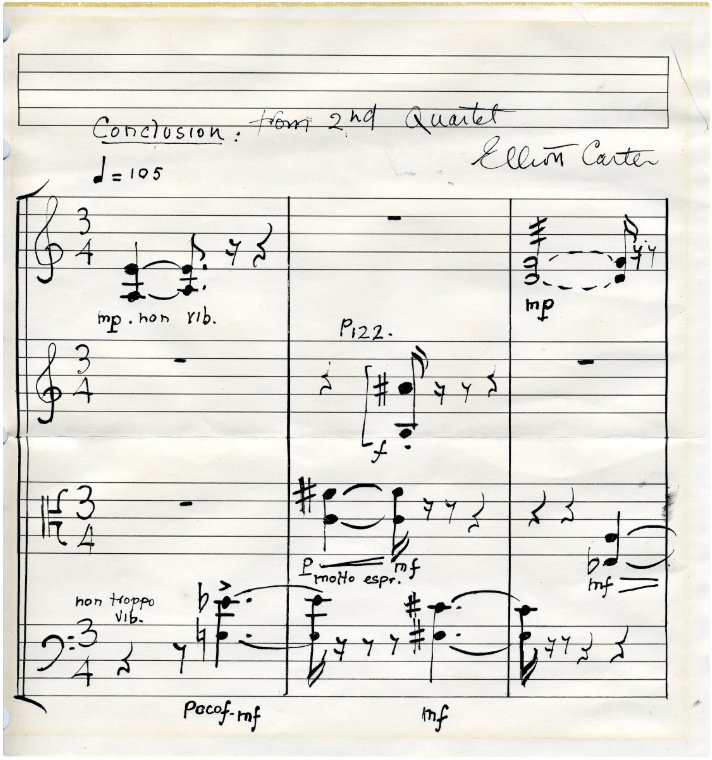 Conclusion: from 2nd Quartet
Elliott Carter
♩=105
3 4
mp. non vib.
mp
Pizz.
3 4
f
3 4
p mf
molto espr.
mf
non troppo
vib.
3 4
poco f-mf
mf